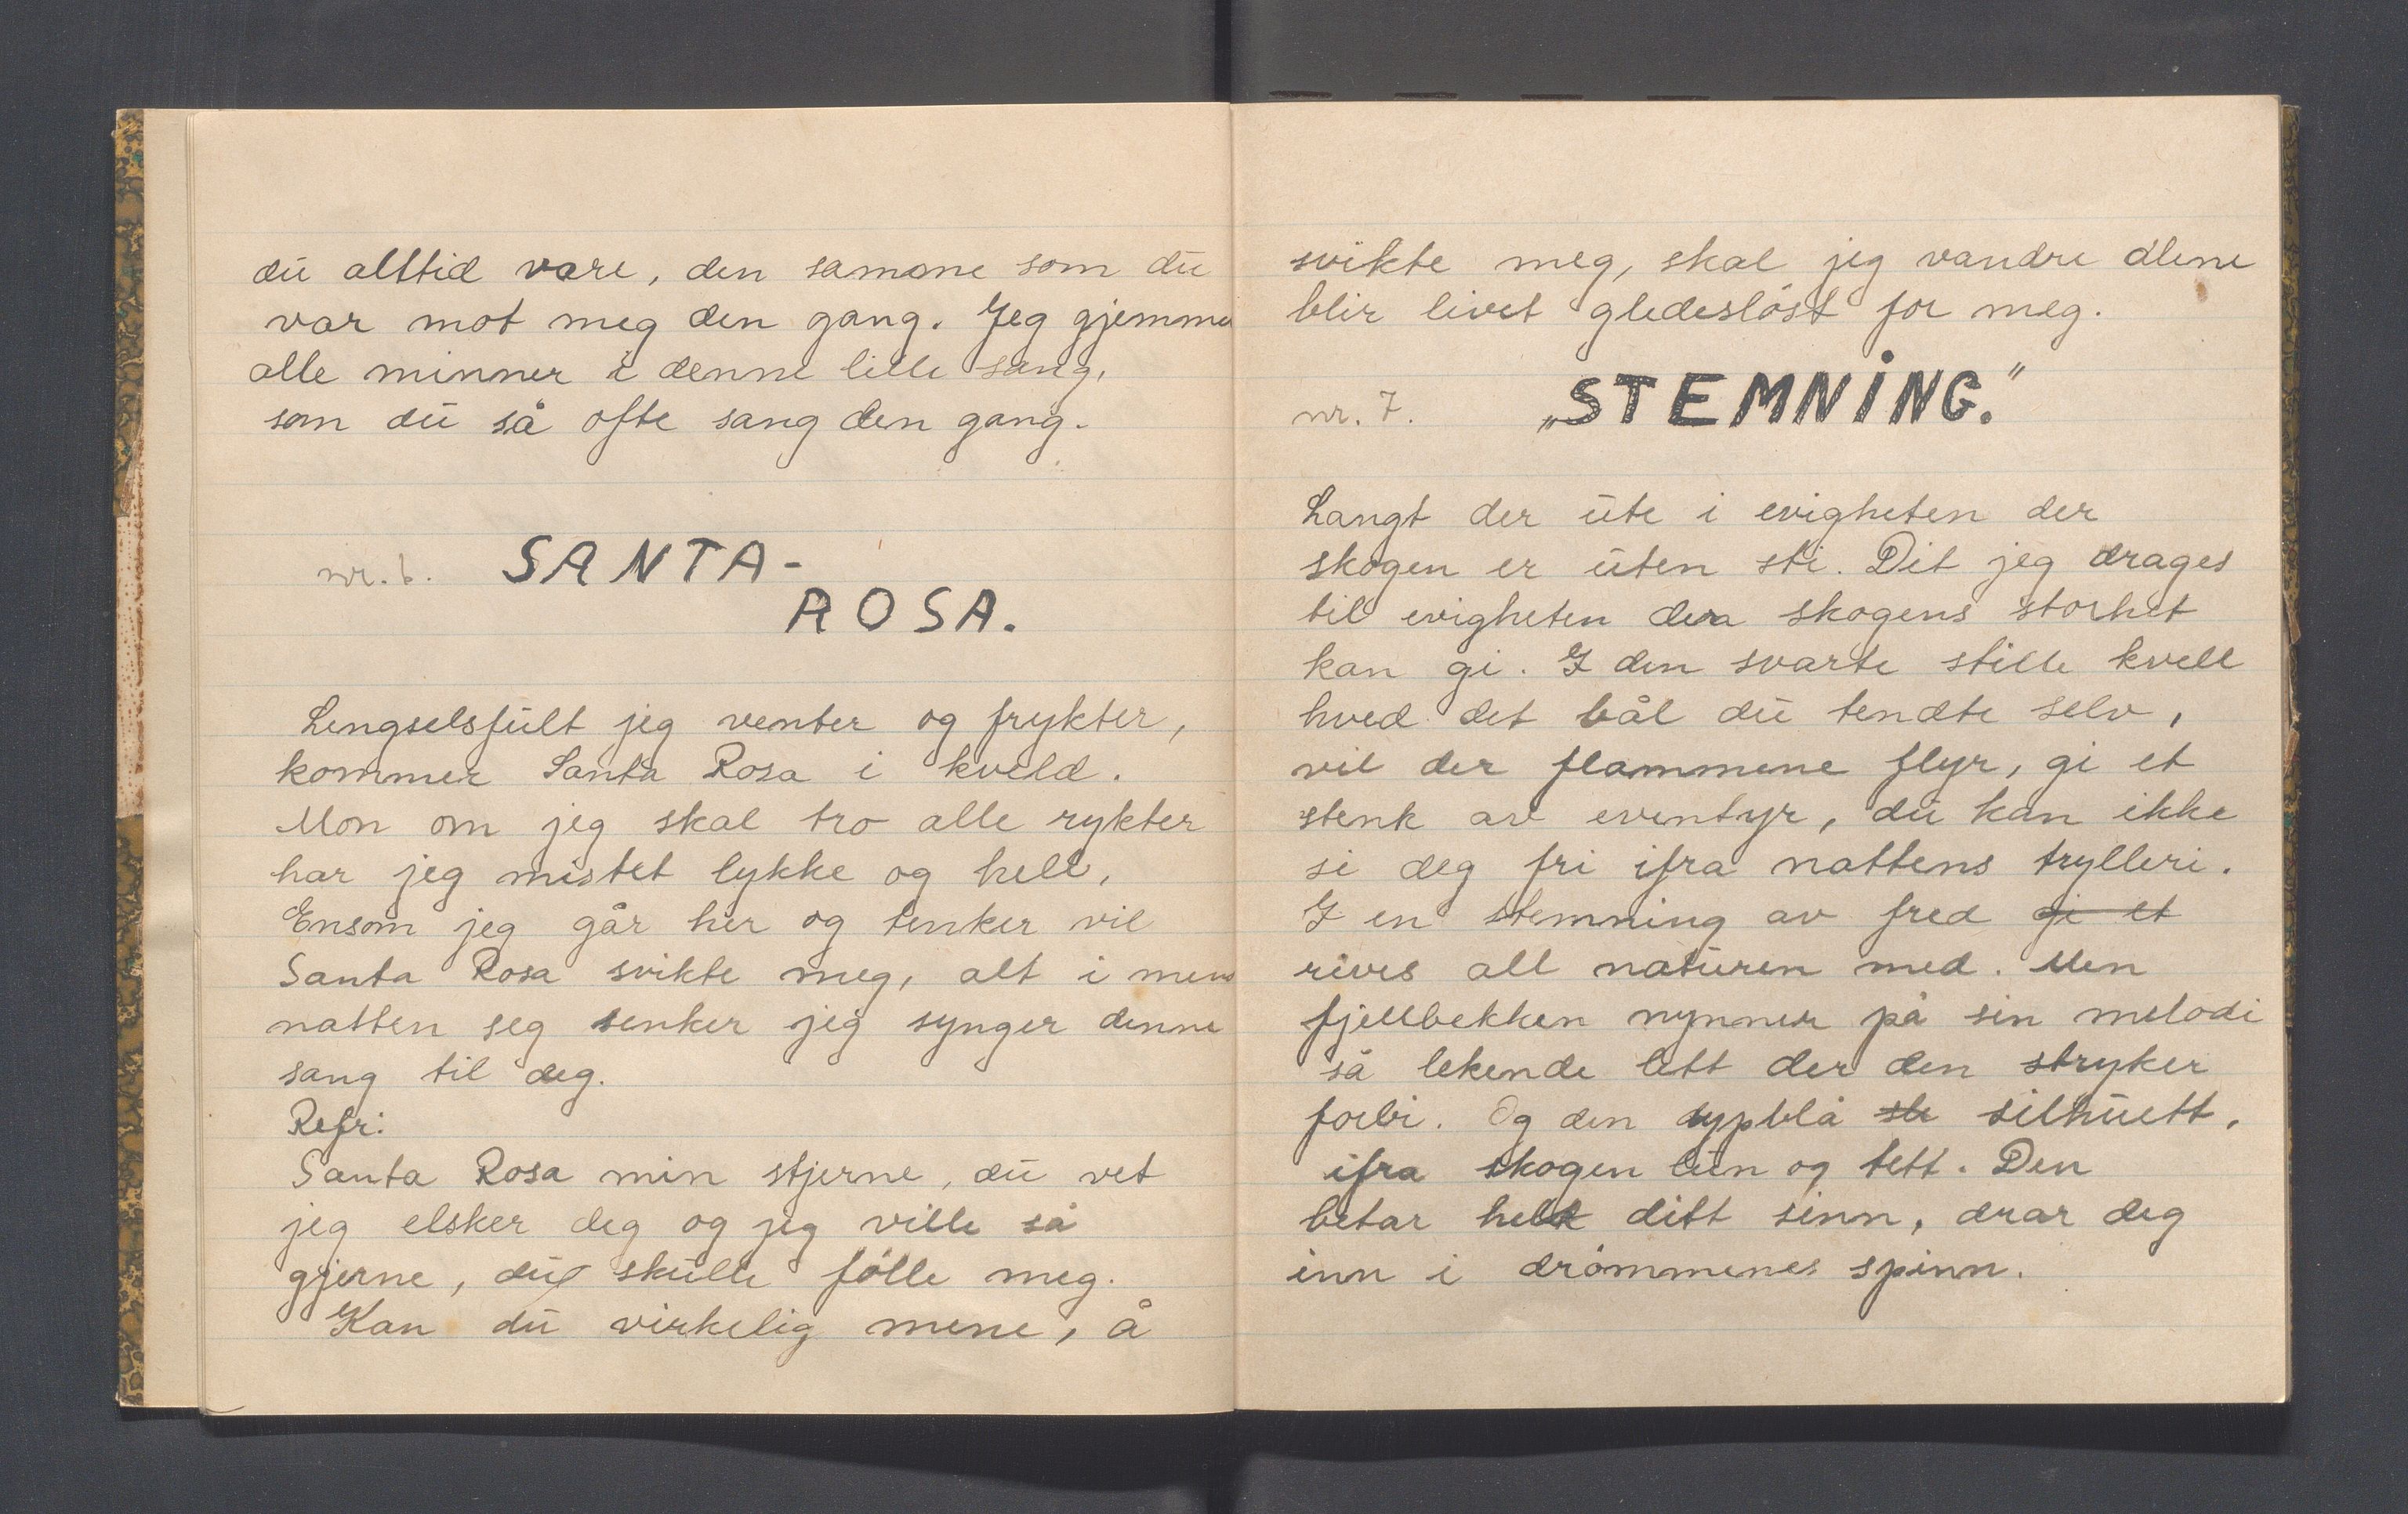 du alltid vare, den samme som du
var mot meg den gang. Jeg gjemmer
alle minner i denne lille sang,
som du så ofte sang den gang.
nr. 6. SANTA-
ROSA.
Lengselsfult jeg venter og frykter,
kommer Santa Rosa i kveld.
Mon om jeg skal tro alle rykter
har jeg mistet lykke og hell,
Ensom jeg går her og tenker vil
Santa Rosa svikte meg, alt i mens
natten seg senker jeg synger denne
sang til deg.
Refr:
Santa Rosa min stjerne, du vet
jeg elsker deg og jeg ville så
gjerne, du skulle følle meg.
Kan du virkelig mene, å
svikte meg, skal jeg vandre alene
blir livet gledesløst for meg.
nr. 7. „STEMNING."
Langt der ute i evigheten der
skogen er uten sti. Dit jeg drages
til evigheten den skogens storhet
kan gi. I den svarte stille kvell
hved det bål du tendte selv,
vil der flammene flyr, gi et
stenk av eventyr, du kan ikke
si deg fri ifra nattens trylleri.
I en stemning av fred gi et
rives all naturen med. Men
fjellbekken nynner på sin melodi
så lekende lett der den stryker
forbi. Og den dypblå sle silhuett,
ifra skogen lun og tett. Den
betar helt ditt sinn, drar deg
inn i drømmenes spinn.